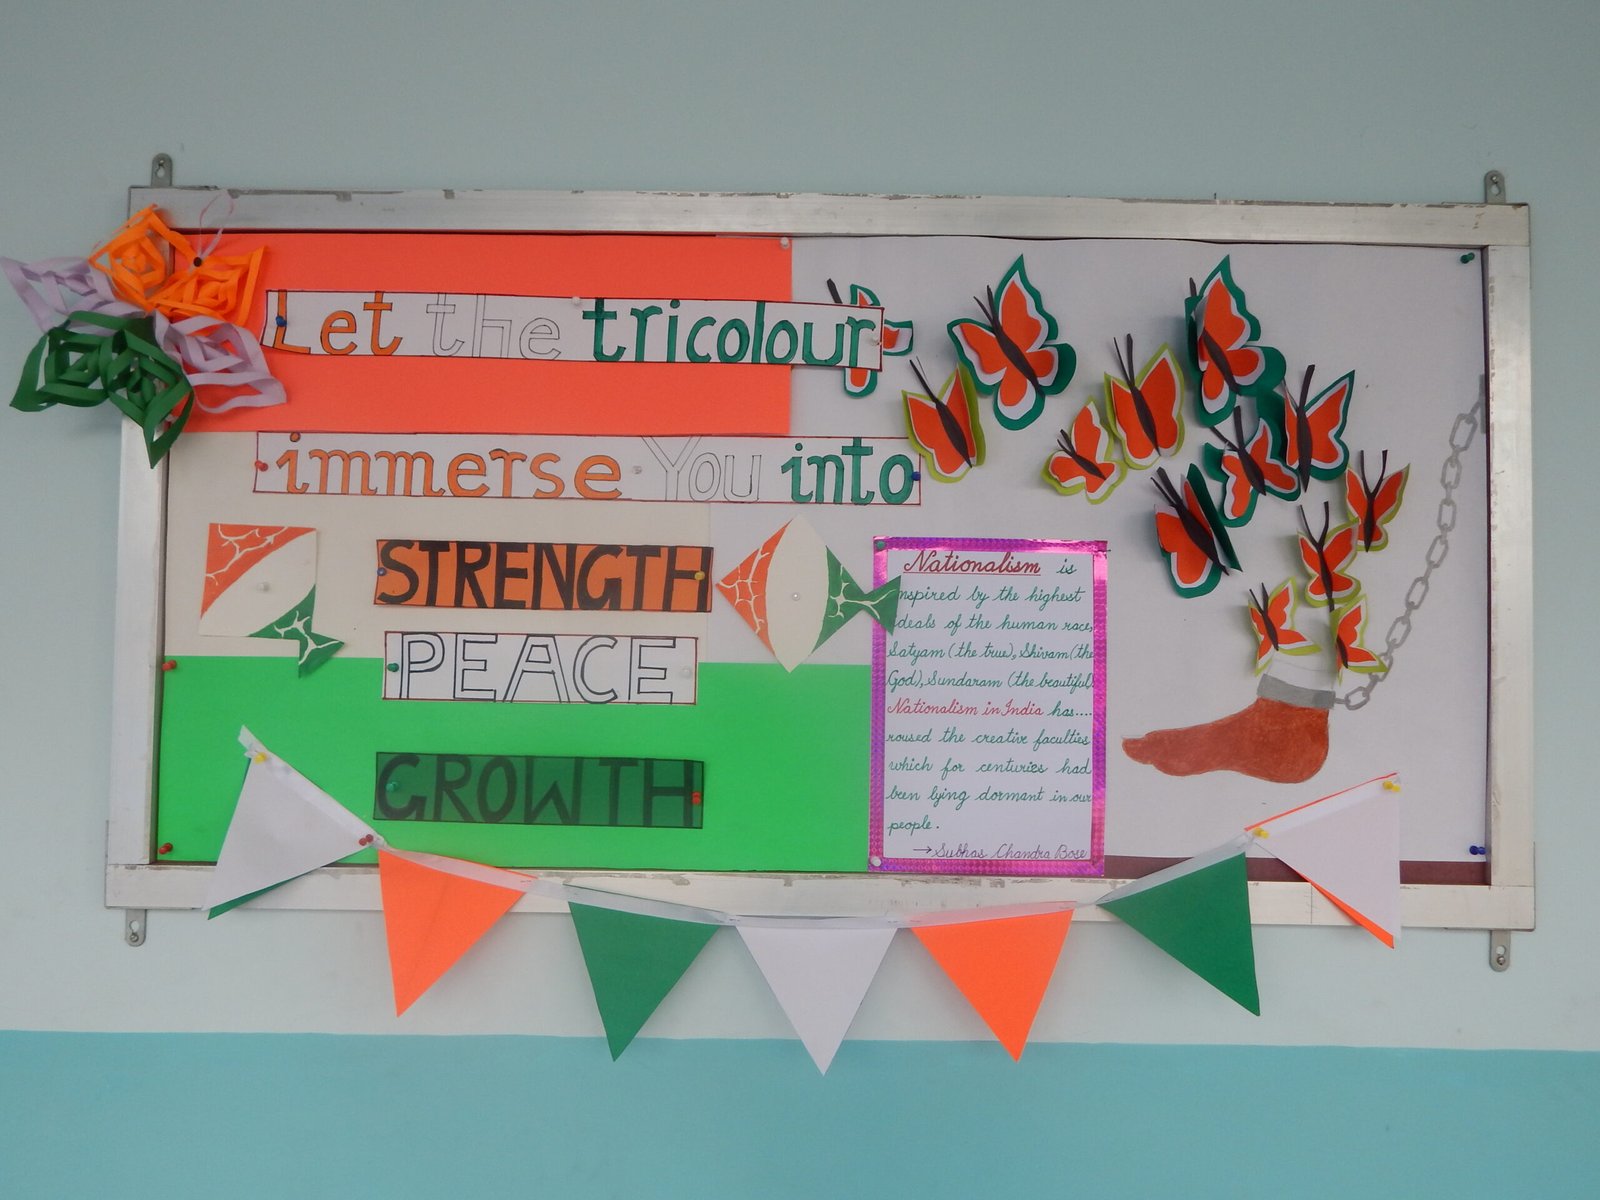 Let the tricolour
immerse You into
STRENGTH
PEACE
GROWTH
Nationalism is
inspired by the highest
ideals of the human race,
Satyam (the true), Shivam (the
God), Sundaram (the beautiful)
Nationalism in India has....
roused the creative faculties
which for centuries had
been lying dormant in our
people.
→ Subhas Chandra Bose